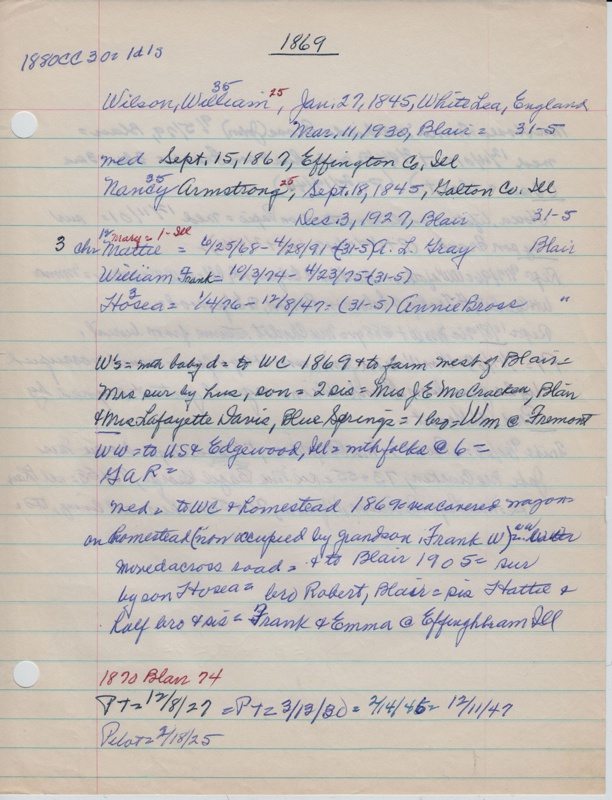 1869
1880CC 302 1d 1s
Wilson, William 35 25, Jan. 27, 1845, White Lea, England
Mar. 11, 1930, Blair = 31-5
med Sept. 15, 1867, Effington Co. Ill
Nancy 35 Armstrong 25, Sept. 18, 1845, Galton Co. Ill
Dec. 3, 1927, Blair 31-5
Mary = 1 - Ill
3 chr Mattie = 6/25/68 - 4/28/91 - (31-5) A. L. Gray Blair
William Frank = 10/3/74 - 4/23/75 - (31-5)
Hosea 3 = 1/4/76 - 12/8/47 = (31-5) Annie Bross "
W's = with baby d = to WC 1869 & to farm west of Blair =
Mrs sur by hus, son = 2 sis = Mrs J E McCracken, Blair
& Mrs Lafayette Davis, Blue Springs = 1 bro = Wm @ Fremont
WW = to US & Edgewood, Ill = with folks @ 6 =
GAR =
med = to WC & homestead 1869 = via covered wagon =
on homestead (now occupied by grandson, Frank W) =
moved across road = & to Blair 1905 = sur
by son Hosea = bro Robert, Blair = sis Hattie &
half bro & sis = Frank & Emma @ Effinghbram Ill
1870 Blair 74
PT = 12/8/27 = PT = 3/13/30 = 2/14/46 = 12/11/47
Pilot = 2/18/25